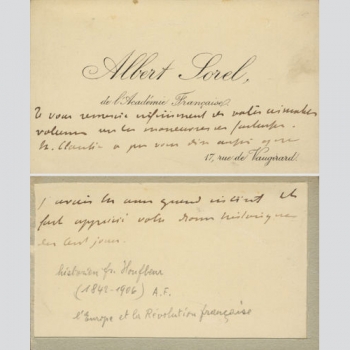 Albert Sorel,
de l'Académie Française,
vous remercie infiniment de votre aimable
volume sur les manoeuvres de
M. Claretie a pu vous dire aussi que
17, rue de Vaugirard.
j'avais lu avec grand intérêt et
fort apprécié votre drame historique
des Cent jours.
historien fr Honfleur
(1842-1906) A.F.
l'Europe et la Révolution française